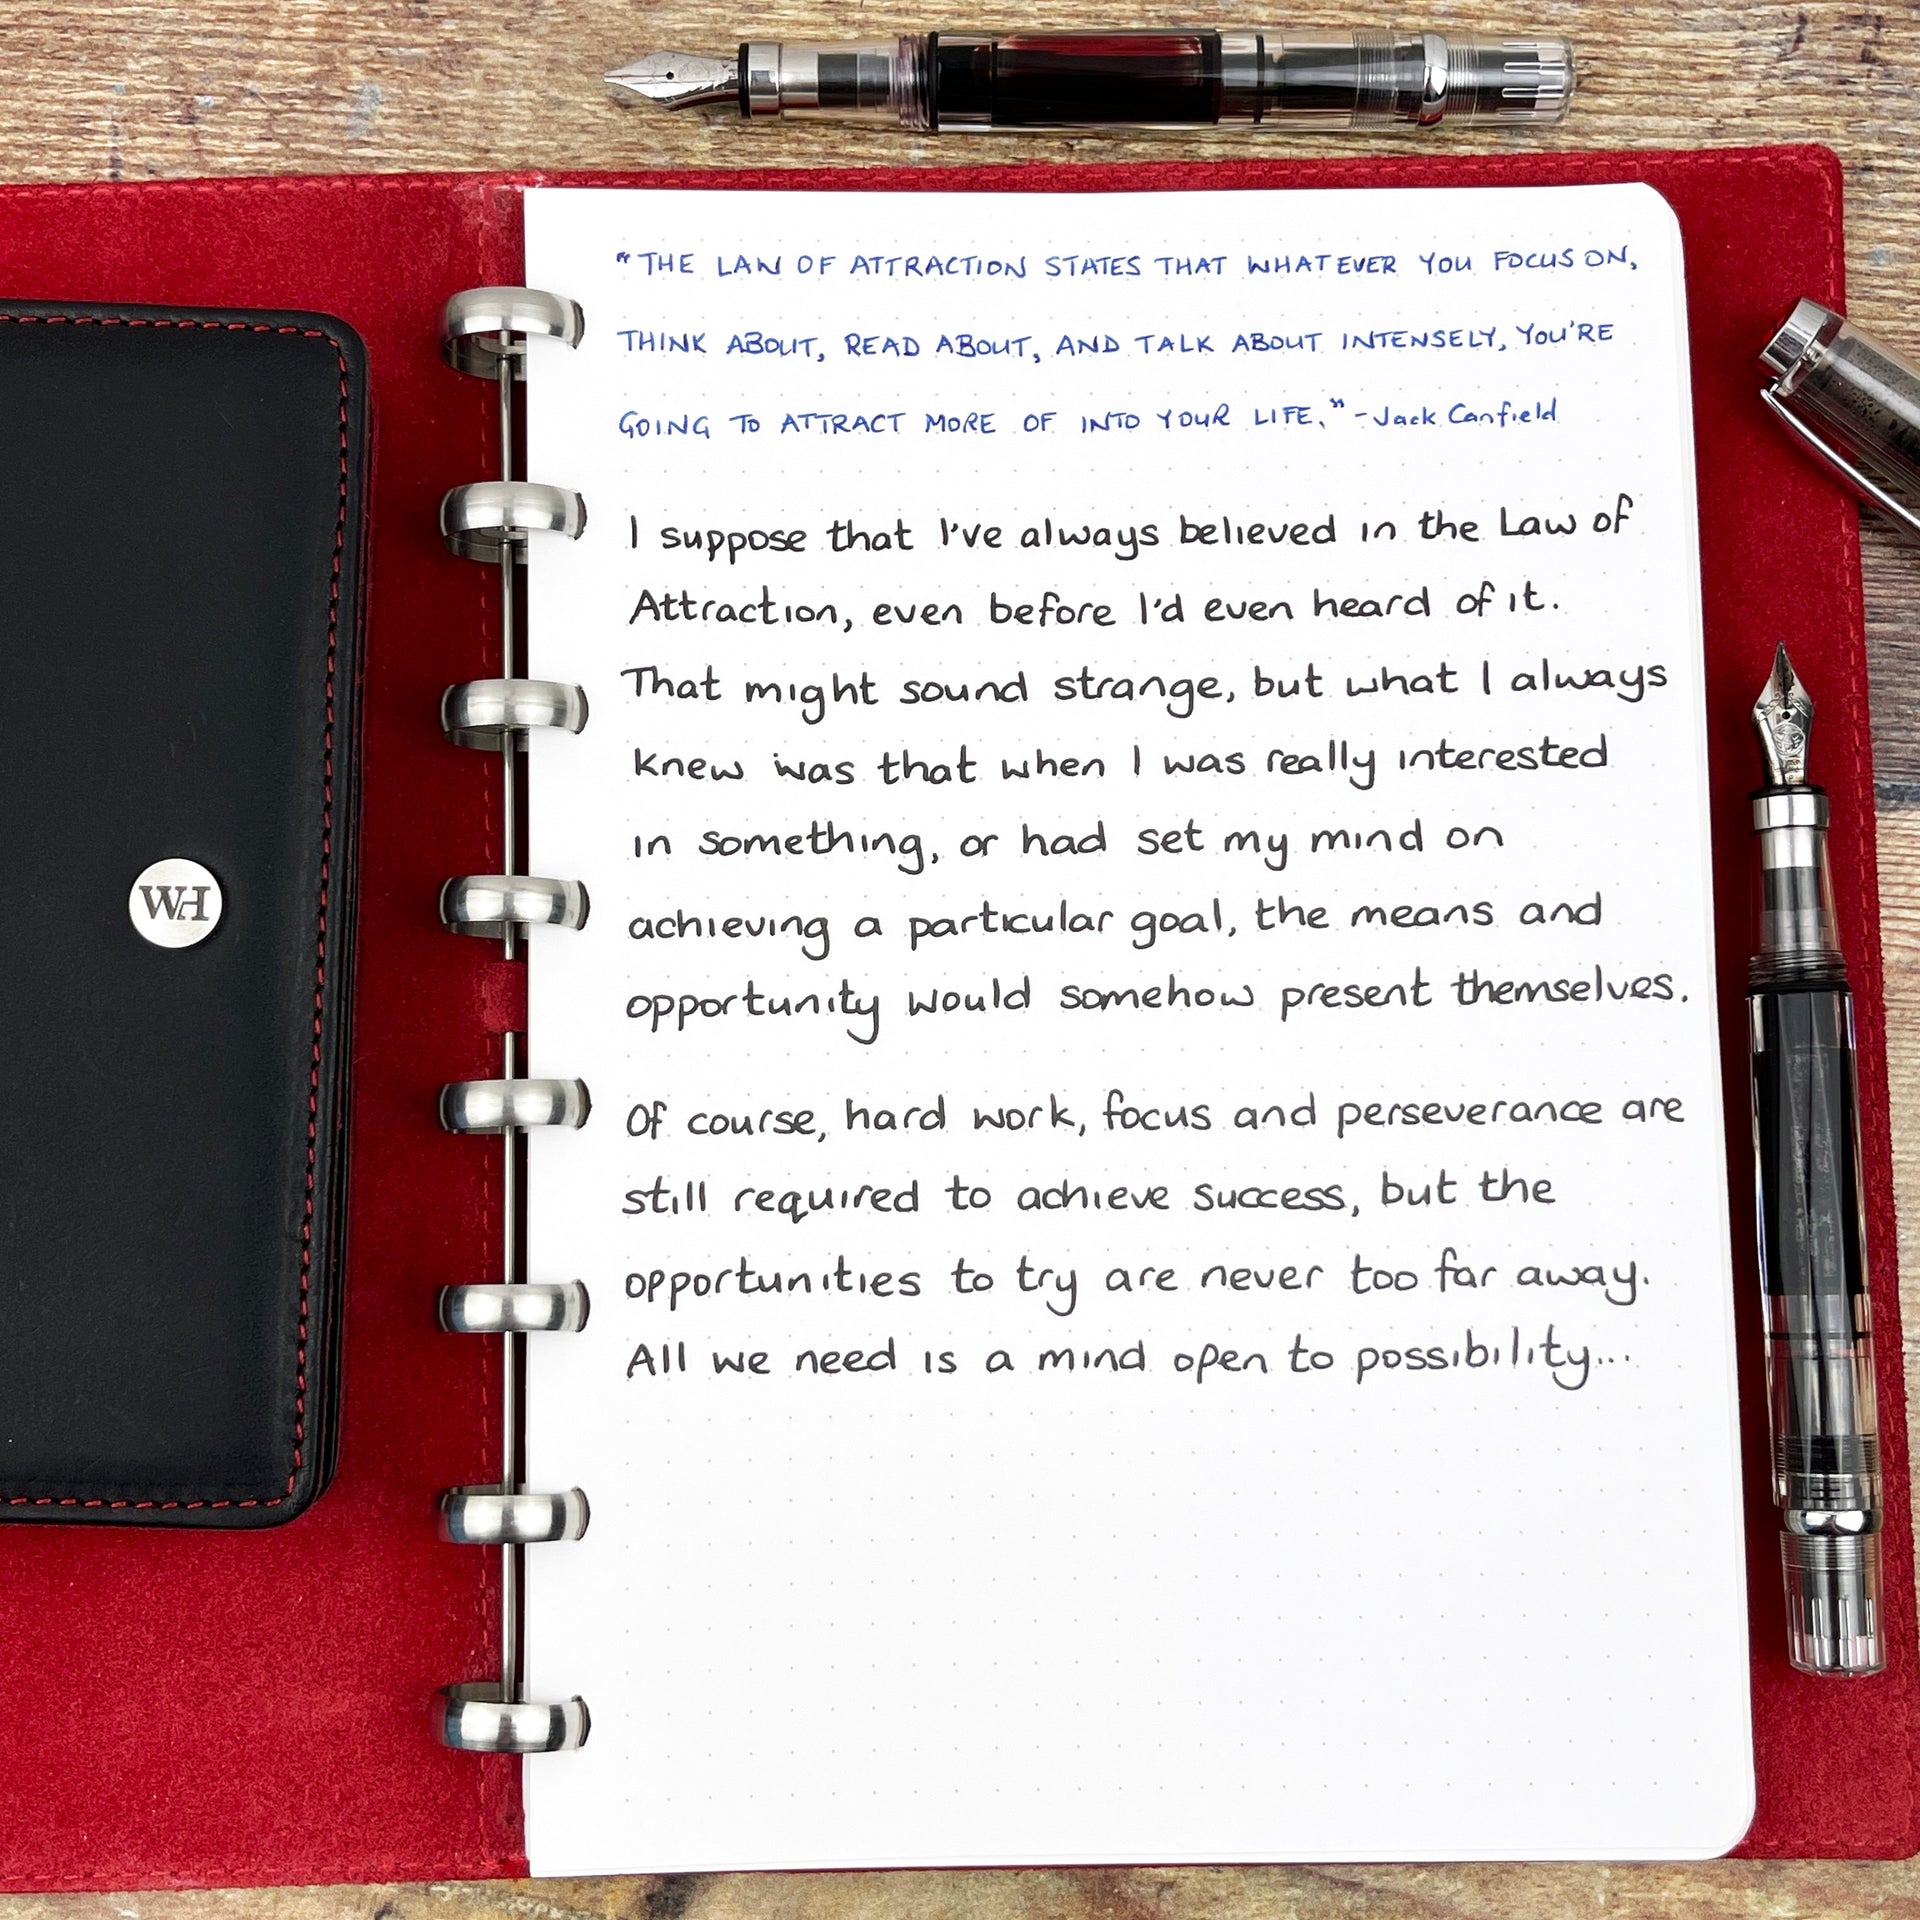 "THE LAW OF ATTRACTION STATES THAT WHATEVER YOU FOCUS ON,
THINK ABOUT, READ ABOUT, AND TALK ABOUT INTENSELY, YOU'RE
GOING TO ATTRACT MORE OF INTO YOUR LIFE." - Jack Canfield
I suppose that I've always believed in the Law of
Attraction, even before I'd even heard of it.
That might sound strange, but what I always
knew was that when I was really interested
in something, or had set my mind on
achieving a particular goal, the means and
opportunity would somehow present themselves.
Of course, hard work, focus and perseverance are
still required to achieve success, but the
opportunities to try are never too far away.
All we need is a mind open to possibility...
WH